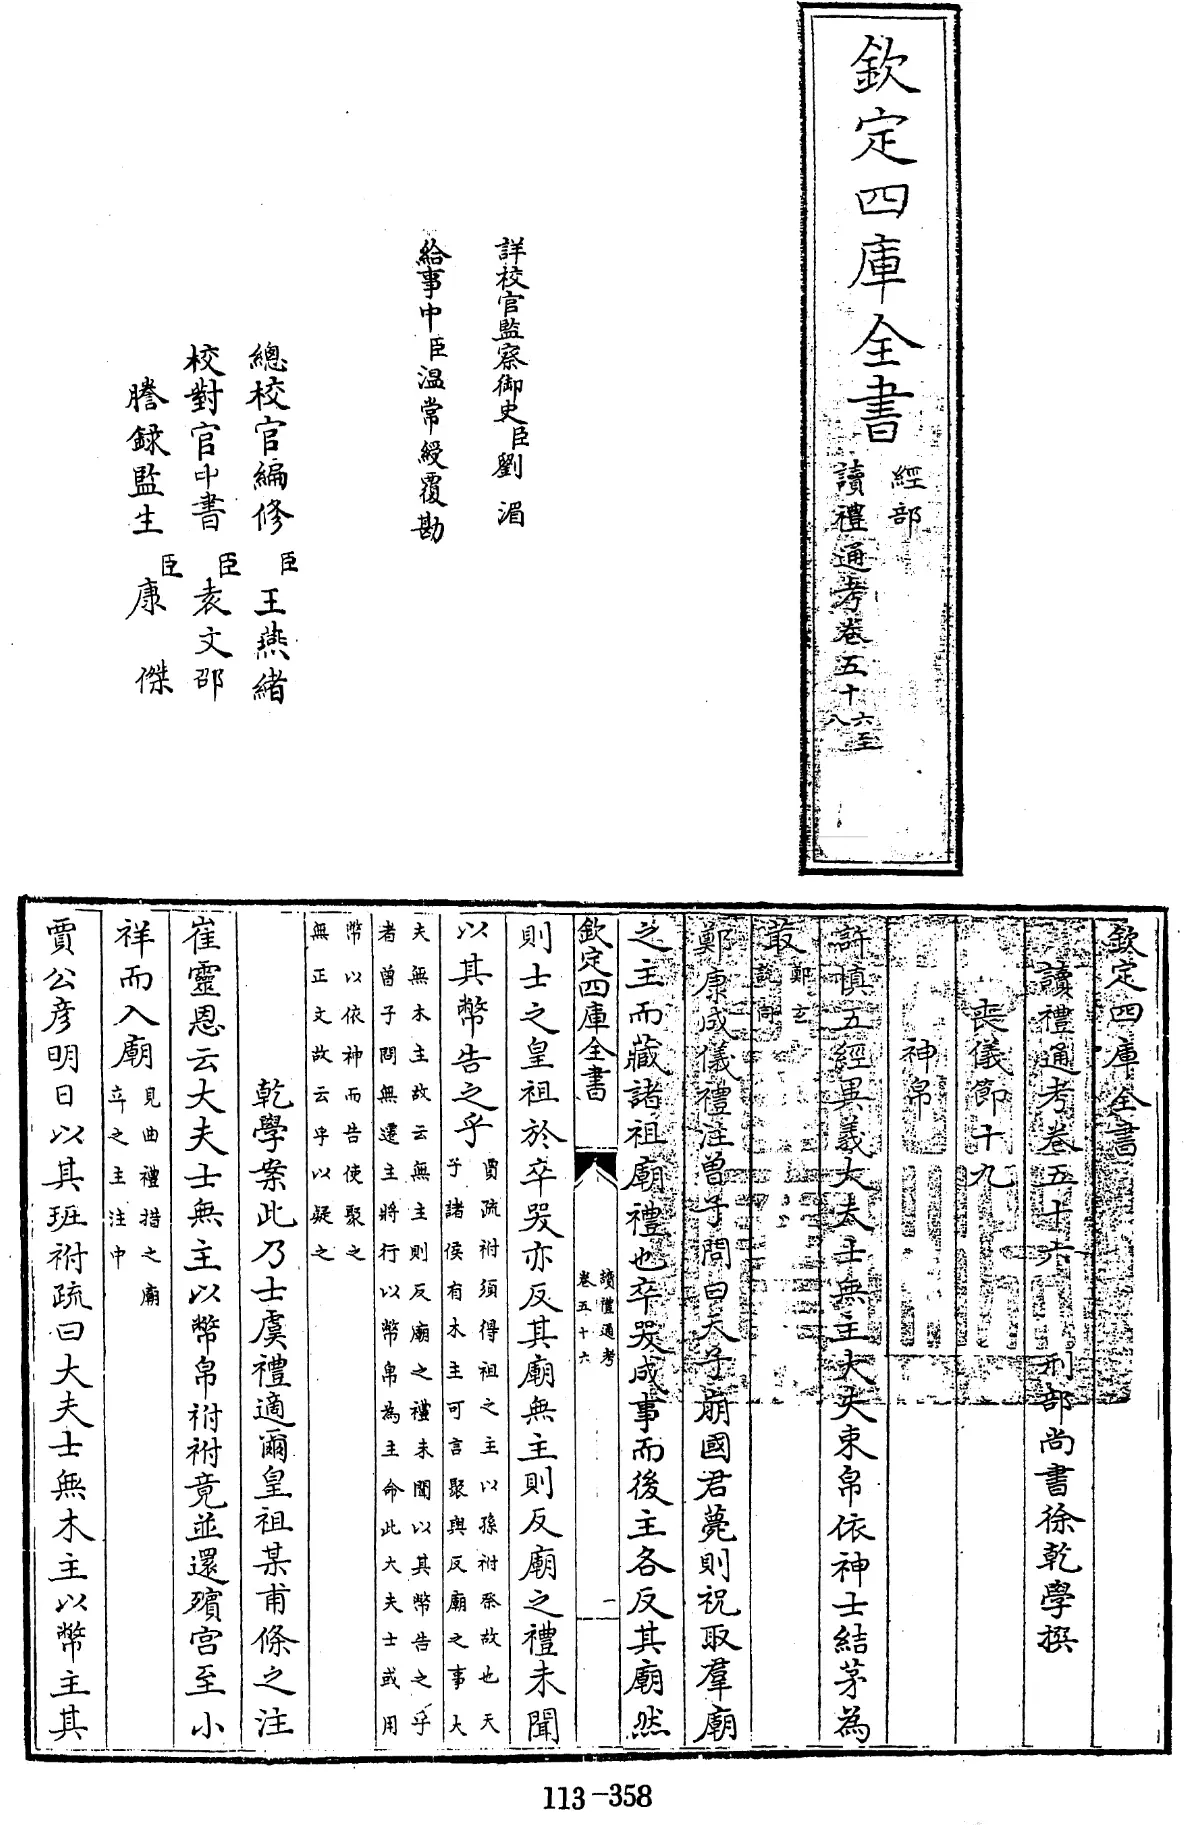 欽定四庫全書
經部
讀禮通考卷五十六至
八
詳校官監察御史臣劉湄
給事中臣温常綬覆勘
總校官編修臣王燕緒
校對官中書臣袁文邵
謄録監生臣康傑
欽定四庫全書
讀禮通考卷五十六 刑部尚書徐乾學撰
喪儀節十九
神帛
許慎五經異義大夫士無主大夫束帛依神士結茅為
菆鄭玄
説同
鄭康成儀禮注曽子問曰天子崩國君薨則祝取羣廟
之主而藏諸祖廟禮也卒哭成事而後主各反其廟然
欽定四庫全書
讀禮通考
卷五十六
一
則士之皇祖於卒哭亦反其廟無主則反廟之禮未聞
以其幣告之乎
賈疏祔須得祖之主以孫祔祭故也天
子諸侯有木主可言聚與反廟之事大
夫無木主故云無主則反廟之禮未聞以其幣告之乎
者曽子問無遷主將行以幣帛為主命此大夫士或用
幣以依神而告使聚之
無正文故云乎以疑之
乾學案此乃士虞禮適爾皇祖某甫條之注
崔靈恩云大夫士無主以幣帛祔祔竟並還殯宫至小
祥而入廟
見曲禮措之廟
立之主注中
賈公彦明日以其班祔疏曰大夫士無木主以幣主其
113-358